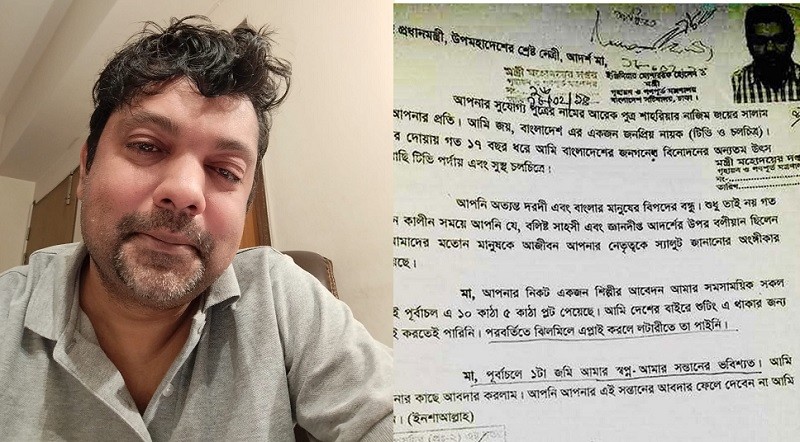 প্রধানমন্ত্রী, উপমহাদেশের শ্রেষ্ঠ নেত্রী, আদর্শ মা,
মন্ত্রী মহোদয়ের দপ্তর
ইঞ্জিনিয়ার মোশাররফ হোসেন
মন্ত্রী
গৃহায়ন ও গণপূর্ত মন্ত্রণালয়
বাংলাদেশ সচিবালয়, ঢাকা।
আপনার সুযোগ্য পুত্রের নামের আরেক পুত্র শাহরিয়ার নাজিম জয়ের সালাম
আপনার প্রতি। আমি জয়, বাংলাদেশ এর একজন জনপ্রিয় নায়ক (টিভি ও চলচিত্র)।
র দোয়ায় গত ১৭ বছর ধরে আমি বাংলাদেশের জনগনের বিনোদনের অন্যতম উৎস
ছি টিভি পর্দায় এবং সুস্থ চলচিত্রে।
মন্ত্রী মহোদয়ের দপ্তর
গৃহায়ন ও গণপূর্ত মন্ত্রণালয়
নং-
তারিখ
আপনি অত্যন্ত দরদী এবং বাংলার মানুষের বিপদের বন্ধু। শুধু তাই নয় গত
ন কালীন সময়ে আপনি যে, বলিষ্ট সাহসী এবং জ্ঞানদীপ্ত আদর্শের উপর বলীয়ান ছিলেন
মাদের মতোন মানুষকে আজীবন আপনার নেতৃত্বকে স্যালুট জানানোর অংঙ্গীকার
য়ছে।
মা, আপনার নিকট একজন শিল্পীর আবেদন আমার সমসাময়িক সকল
ই পূর্বাচল এ ১০ কাঠা ৫ কাঠা প্লট পেয়েছে। আমি দেশের বাইরে শুটিং এ থাকার জন্য
ই করতেই পারিনি। পরবর্তিতে ঝিলমিলে এপ্লাই করলে লটারীতে তা পাইনি।
মা, পূর্বাচলে ১টা জমি আমার স্বপ্ন-আমার সন্তানের ভবিশ্যত। আমি
নার কাছে আবদার করলাম। আপনি আপনার এই সন্তানের আবদার ফেলে দেবেন না আমি
ন। (ইনশাআল্লাহ)